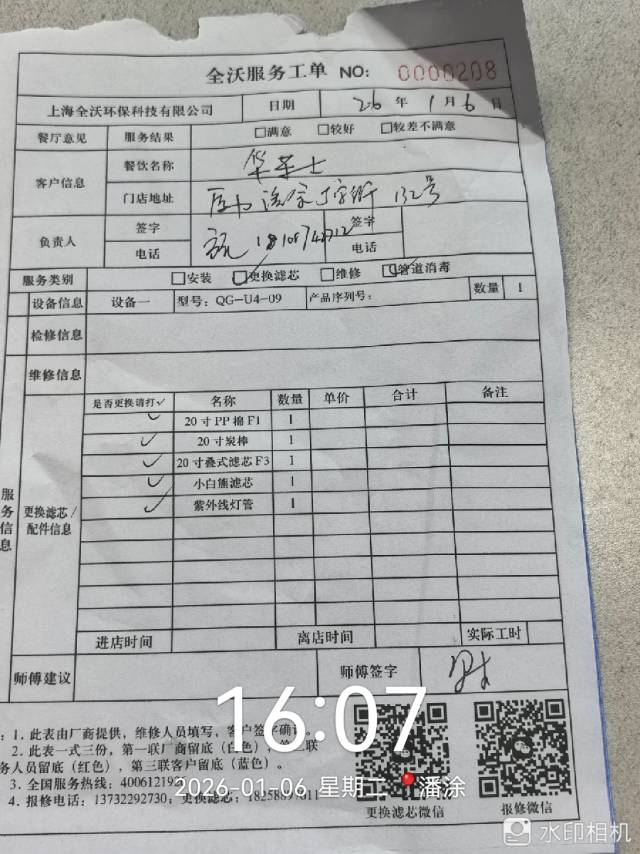 全沃服务工单 NO: 0000208
上海全沃环保科技有限公司 日期 26 年 1 月 6 日
餐厅意见 服务结果 □满意 □较好 □较差不满意
客户信息 餐饮名称 华莱士
门店地址 132号
负责人 签字 签字
电话 电话
服务类别 □安装 □更换滤芯 □维修 □管道消毒
设备信息 设备一 型号: QG-U4-09 产品序列号: 数量 1
检修信息
维修信息
服务信息 更换滤芯/配件信息
是否更换请打✓ 名称 数量 单价 合计 备注
✓ 20寸PP棉F1 1
✓ 20寸炭棒 1
✓ 20寸叠式滤芯F3 1
✓ 小白熊滤芯 1
✓ 紫外线灯管 1
进店时间 离店时间 实际工时
师傅建议 师傅签字
16:07
2026-01-06 星期二 潘涂
: 1. 此表由厂商提供，维修人员填写，客户签字确
2. 此表一式三份，第一联厂商留底
务人员留底（红色），第三联客户留底（蓝色）。
3. 全国服务热线:
4. 报修电话: 13732292730, 更换滤芯:
更换滤芯微信 报修微信
水印相机